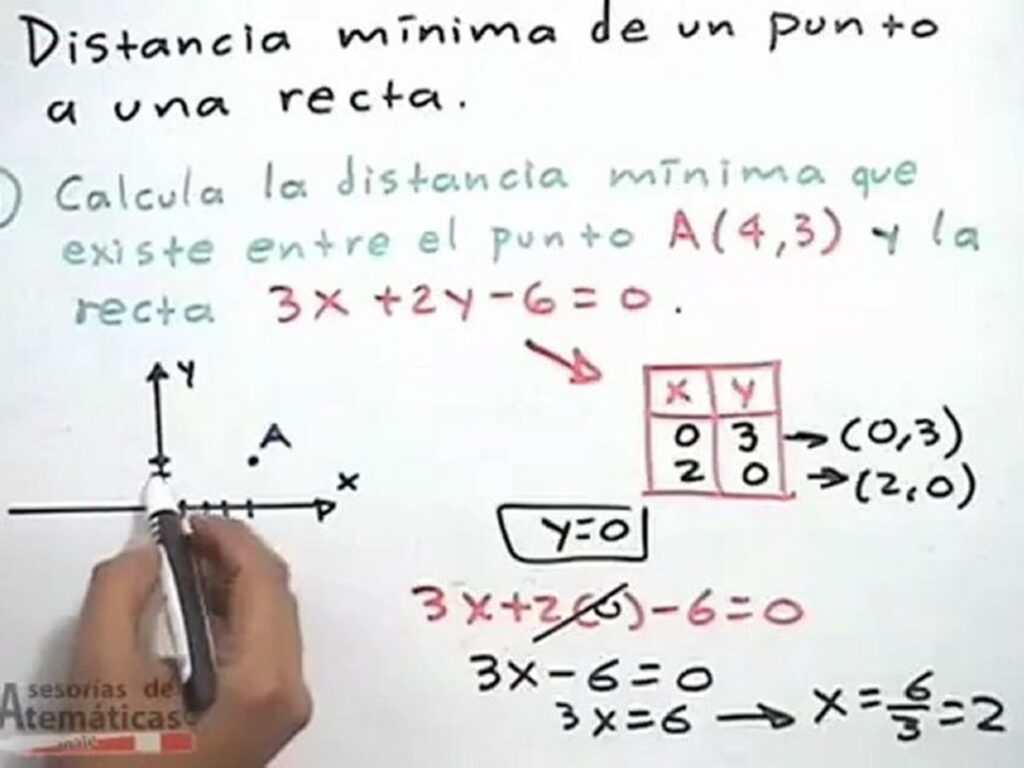 Distancia mínima de un punto
a una recta.
Calcula la distancia mínima que
existe entre el punto A(4,3) y la
recta 3x+2y-6=0.
y
A
x
x y
0 3 → (0,3)
2 0 → (2,0)
y=0
3x+2(0)-6=0
3x-6=0
3x=6 → x=6/3=2
Asesorías de
Matemáticas